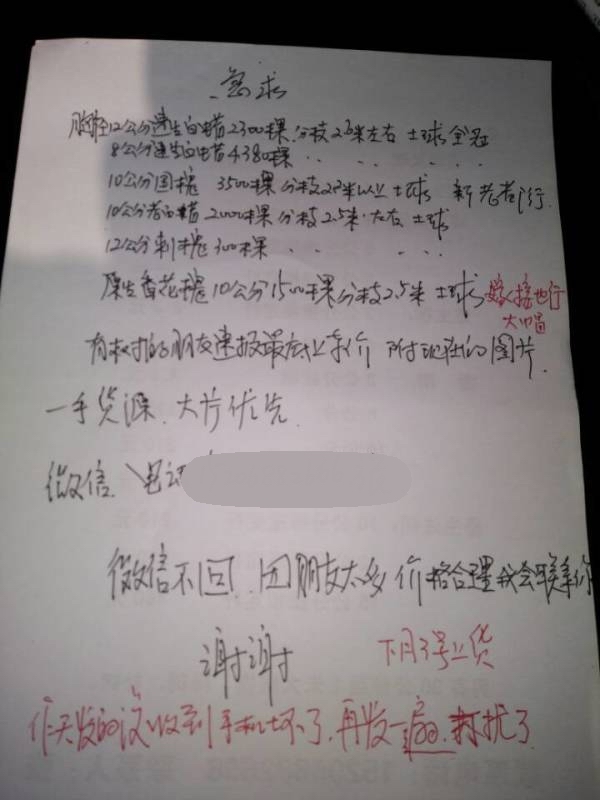 急求
胸径12公分速生白蜡2300棵 分枝2.3米左右 土球全冠
8公分速生白蜡4380棵 〃 〃 〃 〃
10公分国槐 3500棵 分枝2.3米以上 土球 新老都行
10公分老白蜡2000棵 分枝2.5米左右 土球
12公分刺槐300棵 〃 〃 〃
原生香花槐10公分1500棵分枝2.5米 土球 嫁接也行
大冒
有树的朋友速报最底上车价 附地性的图片
一手货源、大片优先
微信、电话
微信不回，因朋友太多 价格合理我会联系你
谢谢
下月3号上货
昨天发的没收到手机坏了，再发一扁。打扰了